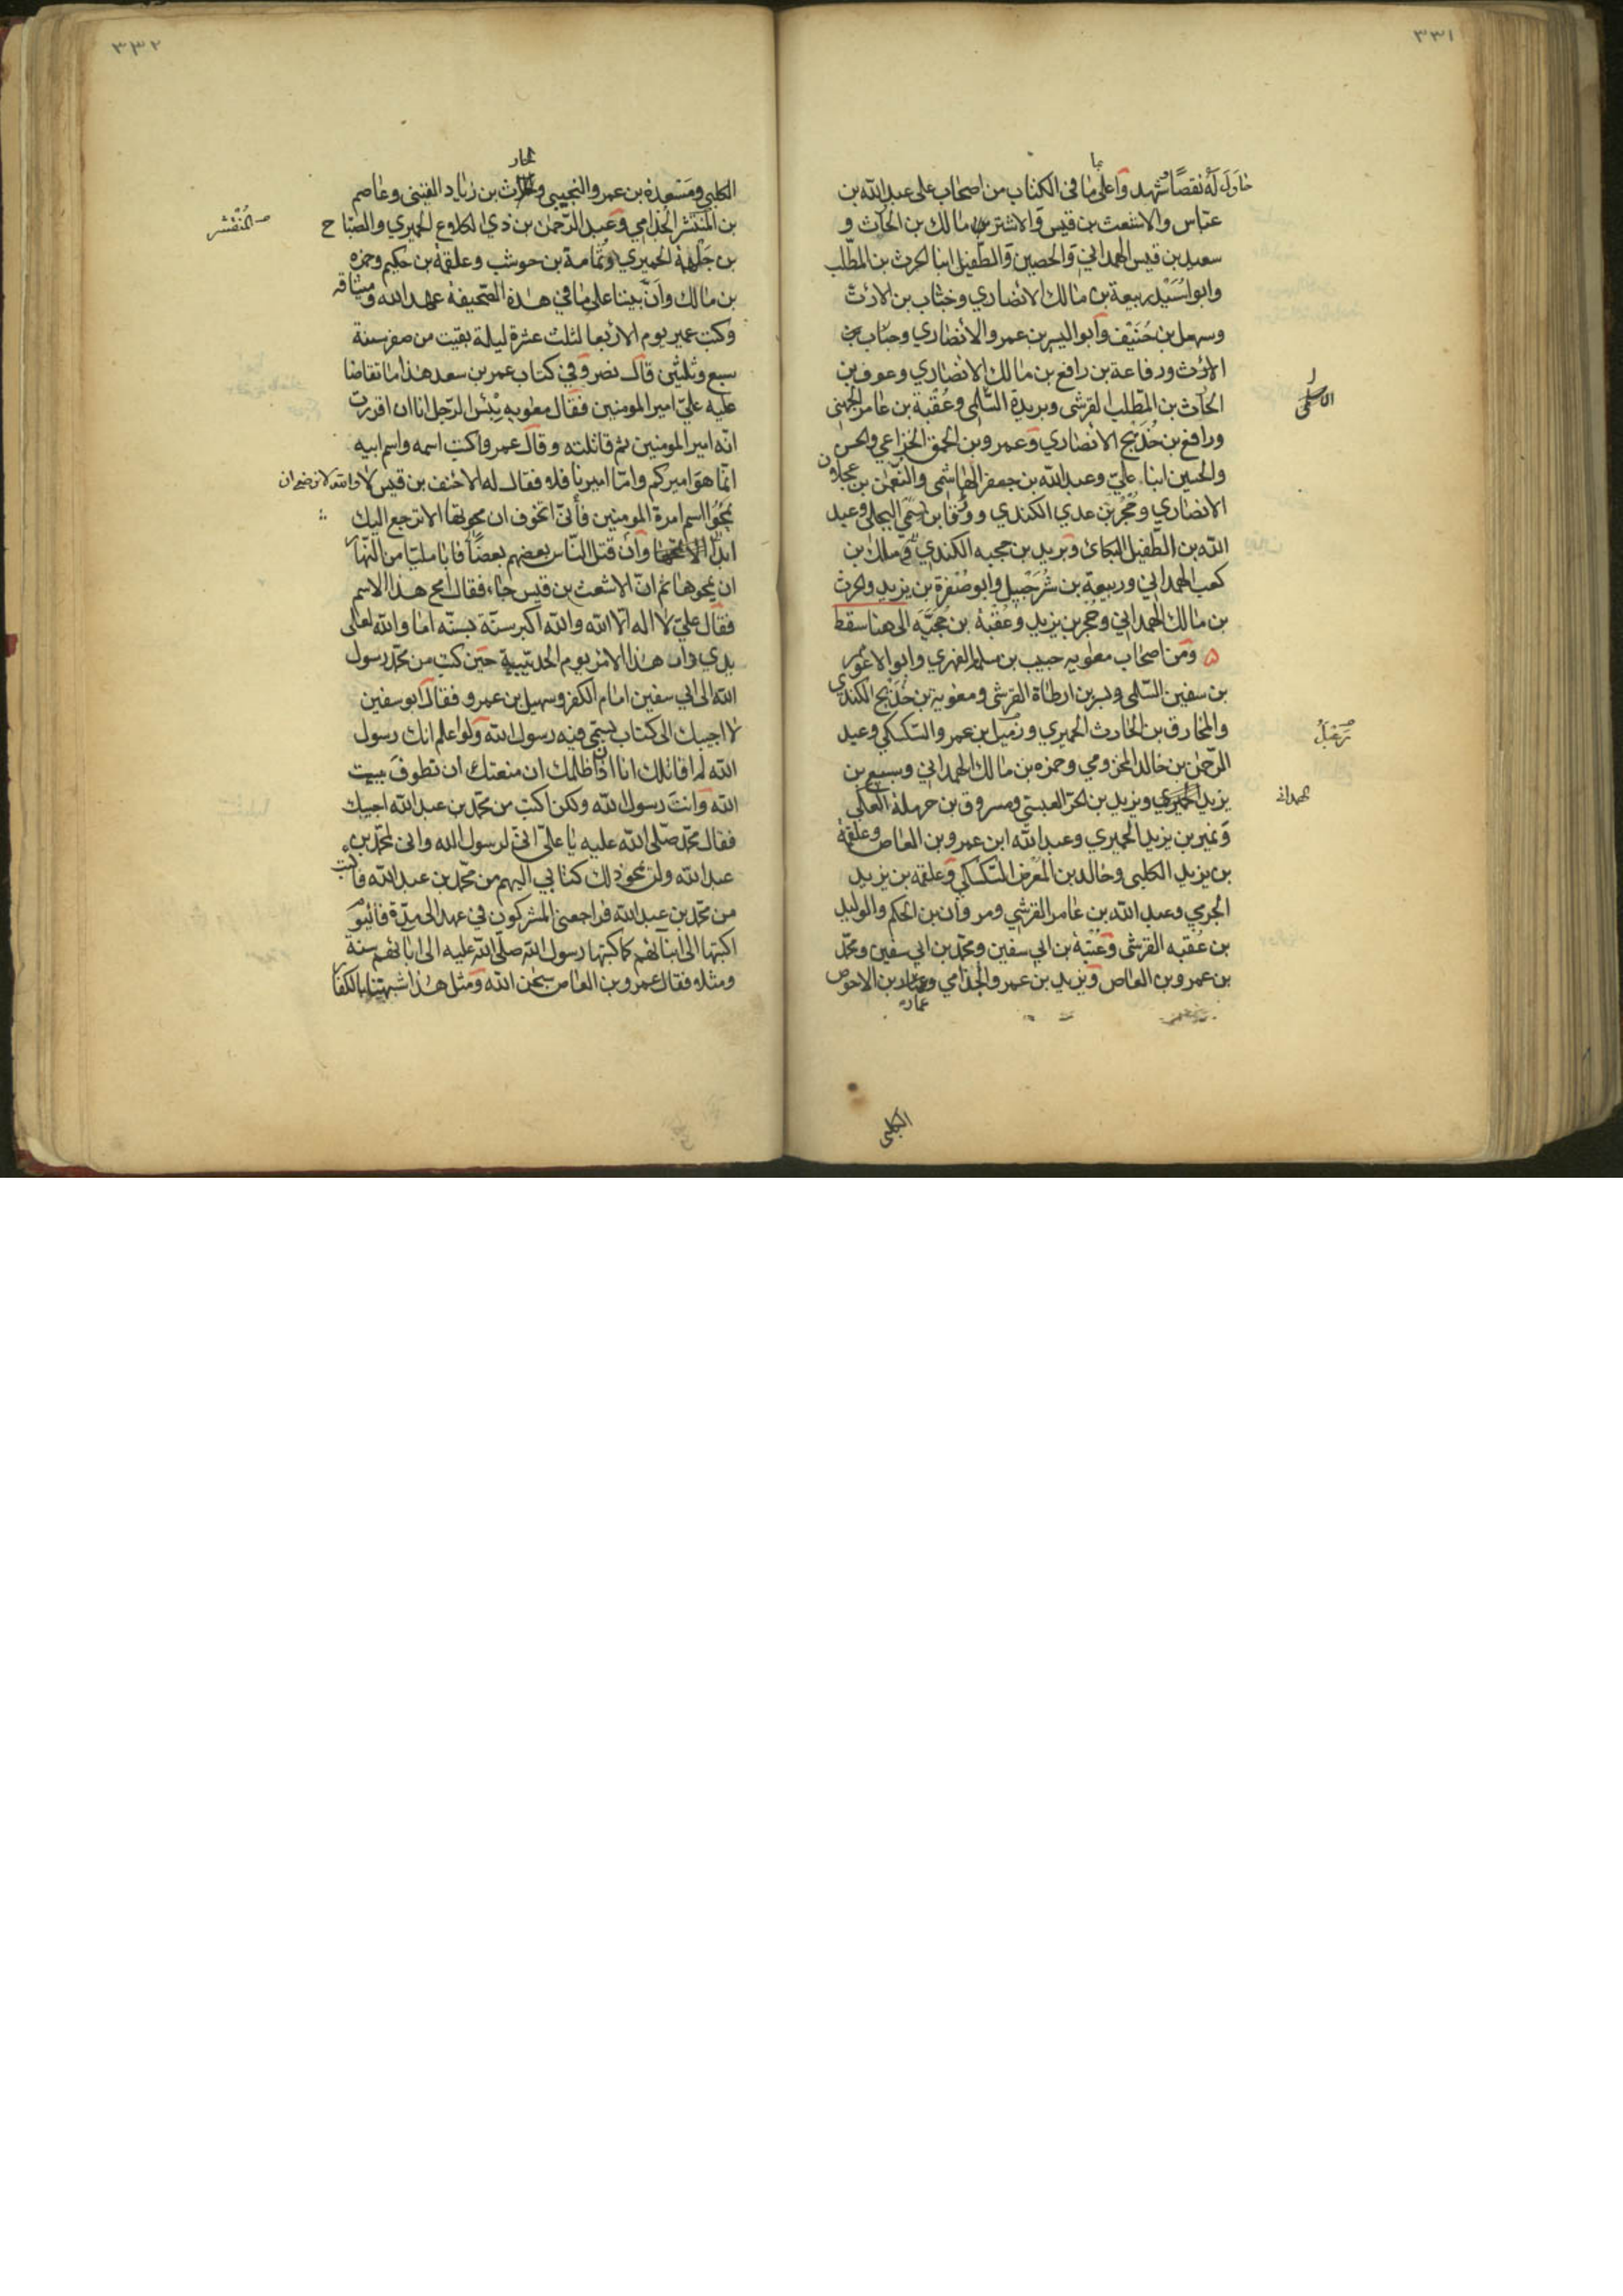 ٣٣١
حاول له نقصا شهد وا على ما فى الكتاب من اصحاب على عبد الله بن
عباس والاشعث بن قيس والاشتر بن مالك بن الحارث و
سعيد بن قيس الهمداني والحصين والطفيل ابنا الحرث بن المطلب
وابو اسيد ربيعة بن مالك الانصاري وخباب بن الارت
وسهل بن حنيف وابو اليسر بن عمرو الانصاري وخباب بن
الارث ورفاعة بن رافع بن مالك الانصاري وعوف بن
الحارث بن المطلب القرشى وبريدة السلمى وعقبة بن عامر الجهنى
الاسلمى
ورافع بن خديج الانصاري وعمرو بن الحمق الخزاعي والحسن
والحسين ابنا على وعبد الله بن جعفر الهاشمى والنعمن بن عجلان
الانصاري وحجر بن عدي الكندي وورقا بن سمى البجلى وعبد
الله بن الطفيل البكائ ويزيد بن حجيه الكندي وملك بن
كعب الهمداني وربيعة بن شرحبيل وابو صفرة بن يزيد والحرث
بن مالك الهمداني وحجر بن يزيد وعقبة بن حجيه الى هنا سقط
ومن اصحاب معويه حبيب بن سلمه الفهري وابو الاعور
بن سفين السلمى وبسر بن ارطاة القرشى ومعوية بن خديج الكندي
والمخارق بن الحارث الحميري وزميل بن عمرو السكسكي وعبد
الرحمن بن خالد المخزومي وحمزه بن مالك الهمداني وسبيع بن
يزيد الحميري ويزيد بن الحر العبسي ومسروق بن حرملة العكي
همدانى
ونمير بن يزيد الحميري وعبد الله ابن عمرو بن العاص وعلقمة
بن يزيد الكلبى وخالد بن المعرض السكسكي وعلقمه بن يزيد
الجرمي وعبد الله بن عامر القرشي ومروان بن الحكم والوليد
بن عقبه القرشى وعتبة بن ابي سفين ومحمد بن ابي سفين ومحمد
بن عمرو بن العاص ويزيد بن عمرو الجذامي وعمار بن الاحوص
الكلبى
٣٣٢
الكلبي ومسعدة بن عمرو التجيبى والحارث بن زياد القينى وعاصم
بن المنتشر الجذامي وعبد الرحمن بن ذي الكلاع الحميري والصباح
المنتشر
بن جلهمة الحميري وثمامة بن حوشب وعلقمة بن حكيم وحمزه
بن مالك وان بيننا على ما في هذه الصحيفة عهد الله وميثاقه
وكتب عمير يوم الاربعا لثلث عشرة ليلة بقيت من صفر سنة
سبع وثلثين قال نصر وفي كتاب عمر بن سعد هذا ما تقاضا
عليه علي امير المومنين فقال معويه بئس الرجل انا ان اقررت
انه امير المومنين ثم قاتلته وقال عمرو اكتب اسمه واسم ابيه
انما هو اميركم واما اميرنا فلا فقال له الاحنف بن قيس لا والله لا نرضى ان
تمحو اسم امرة المومنين فأني اتخوف ان محوتها الا ترجع اليك
ابدا لا تمحها وان قتل الناس بعضهم بعضا فابا مليا من النهار
ان يمحوها ثم ان الاشعث بن قيس جاء فقال امح هذا الاسم
فقال علي لا اله الا الله والله اكبر سنة بسنة اما والله لعلى
يدي دار هذا الامر يوم الحديبية حين كتبت من محمد رسول
الله الى ابي سفين امام الكفر وسهيل بن عمرو فقال ابو سفين
لا اجيبك الى كتاب تسمى فيه رسول الله ولو اعلم انك رسول
الله لم اقاتلك انا اذا ظلمك ان منعتك ان تطوف ببيت
الله وانت رسول الله ولكن اكتب من محمد بن عبد الله اجيبك
فقال محمد صلى الله عليه يا على انى لرسول الله وانى لمحمد بن
عبد الله ولن يمحو ذلك كتابي اليهم من محمد بن عبد الله فاكتب
من محمد بن عبد الله فراجعنى المشركون في عهد الى مدة فاليوم
اكتبها الى ابنائهم كما كتبها رسول الله صلى الله عليه الى ابائهم سنة
ومثلا فقال عمرو بن العاص سبحن الله ومثل هذا شبهتنا بالكفار